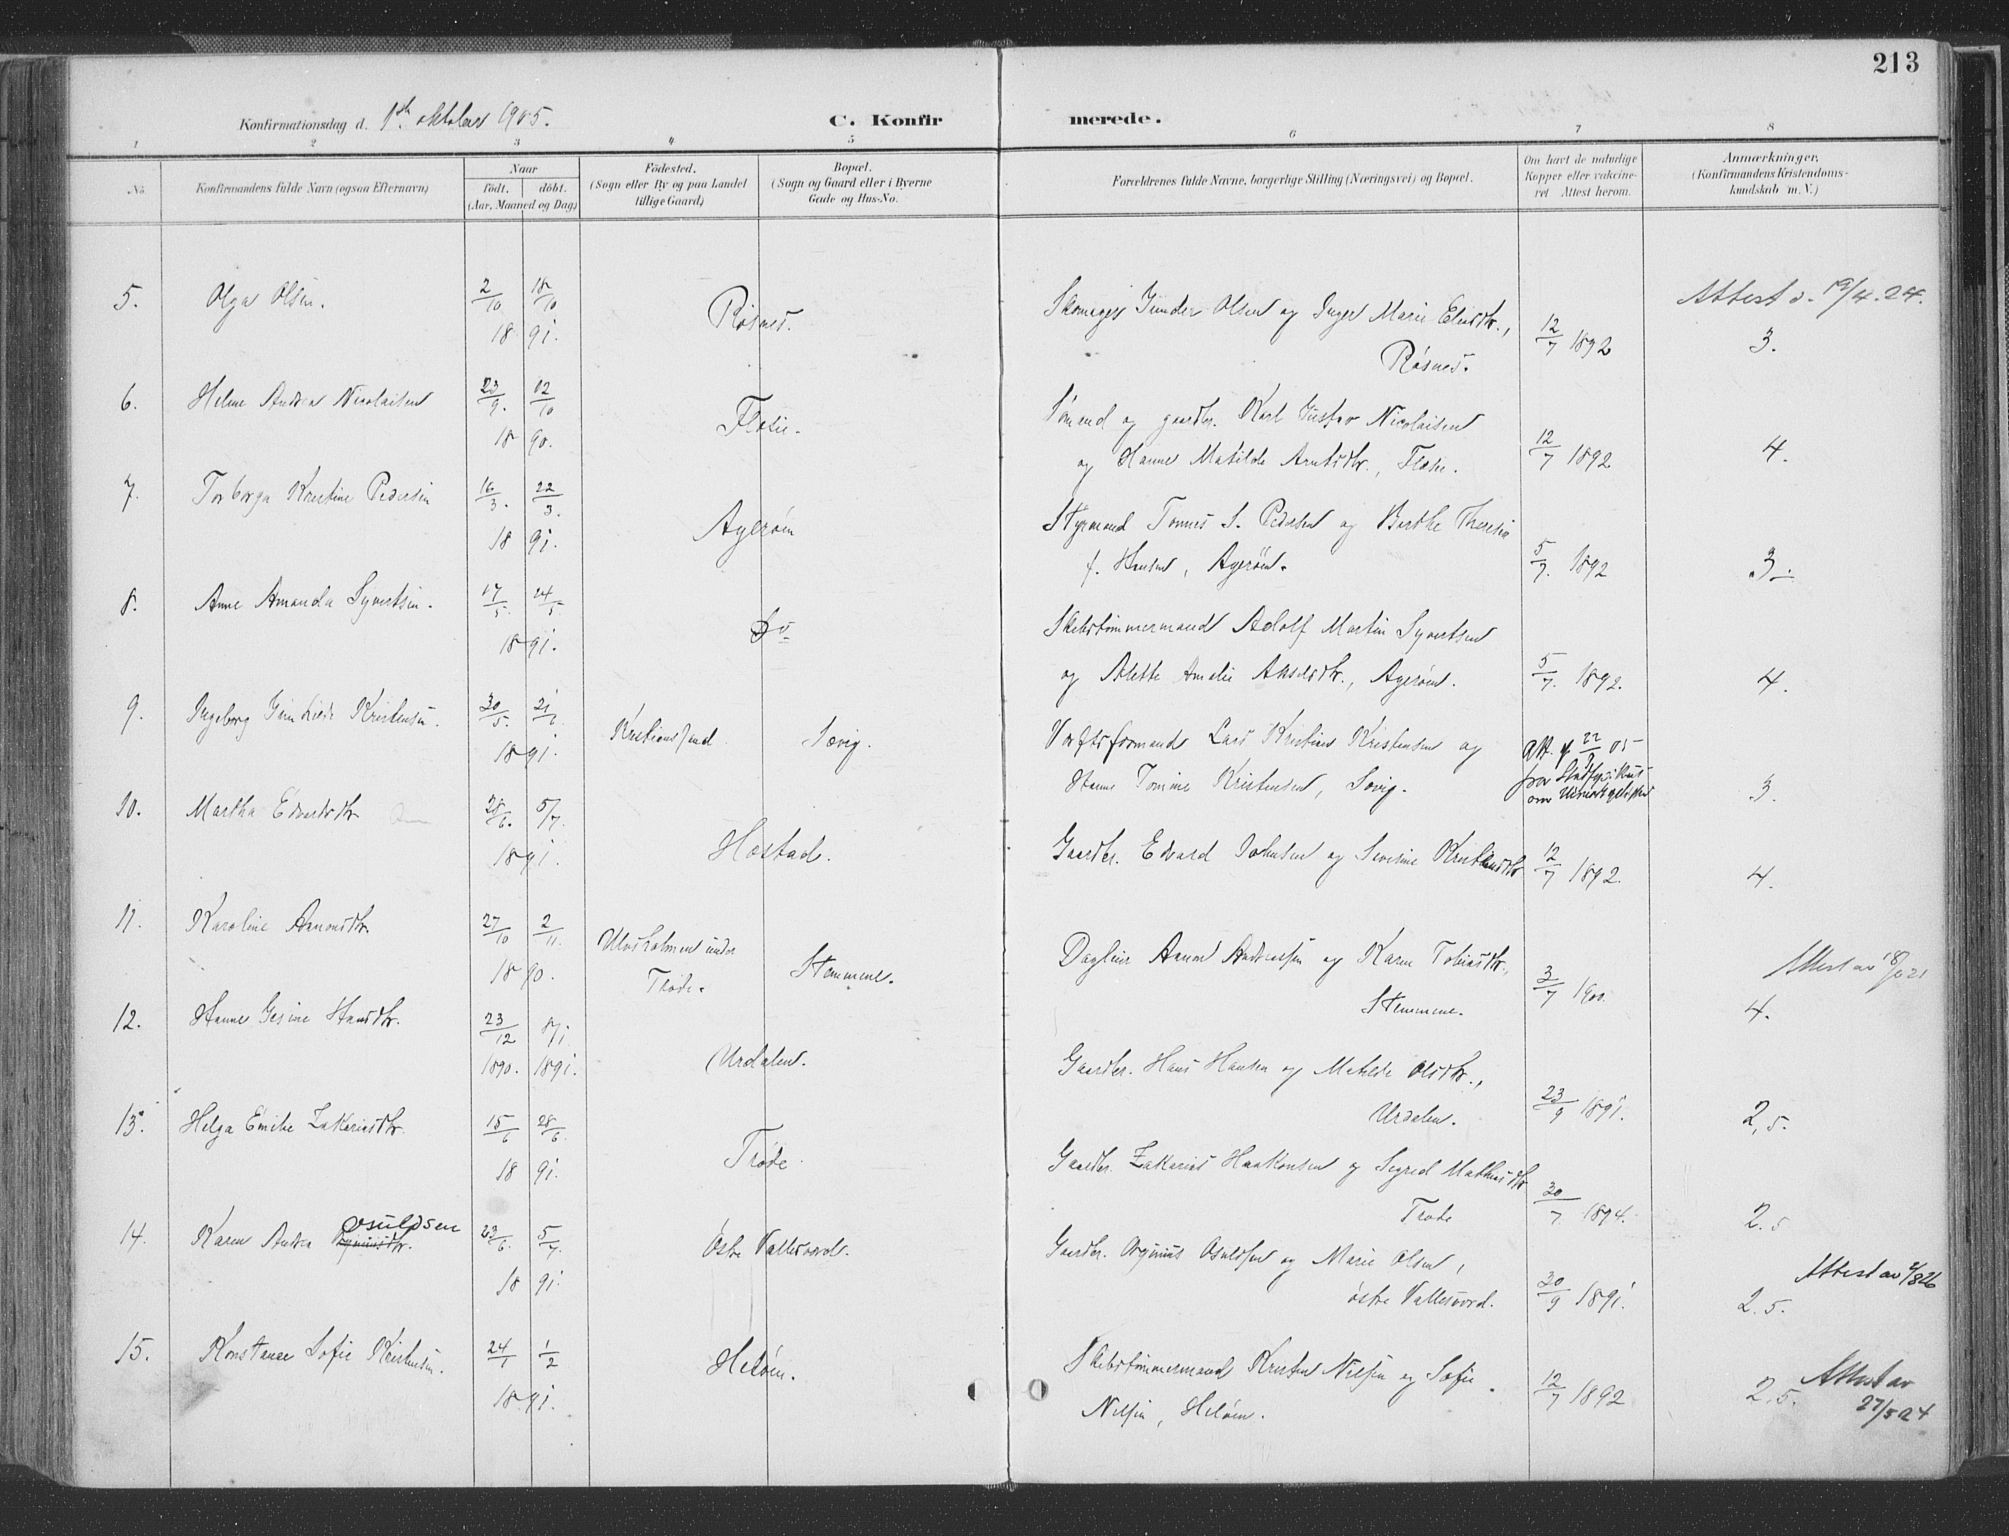 213
Konfirmationsdag d. 1ste oktober 1905.
C. Konfirmerede.
1 2 3 4 5 6 7 8
No.
Konfirmandens fulde Navn (ogsaa Efternavn)
Naar
født. døbt.
(Aar, Maaned og Dag)
Fødested.
(Sogn eller By og paa Landet
tillige Gaard)
Bopæl.
(Sogn og Gaard eller i Byerne
Gade og Hus-No.
Forældrenes fulde Navne, borgerlige Stilling (Næringsvei) og Bopæl.
Om havt de naturlige
Kopper eller vakcineret
Attest herom.
Anmærkninger.
(Konfirmandens Kristendomskundskab
m. V.)
5. Olga Olsen. 2/10 18/10 1891. Røsnes. Skomager Gunder Olsen og Inger Marie
Røsnes. 12/7 1892 3. Attest d. 19/4.24.
6. Helene Andrea Nicolaisen 23/9. 02/10 1890. Flosie. Sømand og gaardbr. Karl Gustav Nicolaisen
og Hanne Matilde Arntsdtr., 12/7 1892 4.
7. Torborga Kristine Pedersen 16/3. 22/3. 1891. Agerøen Styrmand Tønnes S. Pedersen og Berthe Theresia
f. Hansen, Agerøen. 5/7. 1892 3.
8. Anne Amanda Syvertsen. 17/5. 24/5 1891. Do Skibstømmermand Adolf Martin Syvertsen
og Alette Amalie Akselsdtr., Agerøen. 5/7. 1892. 4.
9. Ingeborg Kristensen. 30/5. 21/6 1891. Kristianssand Søvig. Værftsformand Lars Kristian Kristensen og
Hanne Tomine Kristensen, Søvig. Att. af 22/9 05
fra Stadfysikus
om 3.
10. Martha Edvardsdtr 28/6. 5/7. 1891. Høstad. Gaardbr. Edvard Johnsen og Severine Kristensdtr 12/7 1892. 4.
11. Karoline Aanonsdtr. 27/10 2/11. 1890. Ulvesholmen under
Trøde. Stemmene. Dagleier Aanon Andreassen og Karen Tobiasdtr.,
Stemmene. 3/7 1900. 4. Attest av
12. Hanne Gesine Hansdtr. 23/12 1890. 8/1. 1891. Urdalen. Gaardbr. Hans Hansen og Matilde Olsdtr.,
Urdalen. 23/9 1891. 2,5.
13. Helga Emilie Zakariasdtr. 15/6 28/6. 1891. Trøde. Gaardbr. Zakarias Haakonsen og Sigrid Mathiasdtr
Trøde 30/7 1894. 2.5
14. Karen Andrea Osuldsen 23/6. 5/7. 1891. Østre Vallesværd. Gaardbr. Osuldsen og Marie Olsen,
østre Vallesværd. 30/9 1891. 2.5. Attest av 2/8 26
15. Konstance Sofie Kristensen. 24/1 1/2 1891. Heløen. Skibstømmermand Kristen Nilsen og Sofie
Nilsen, Heløen. 12/7 1892 2,5. Attest av
27/5 24